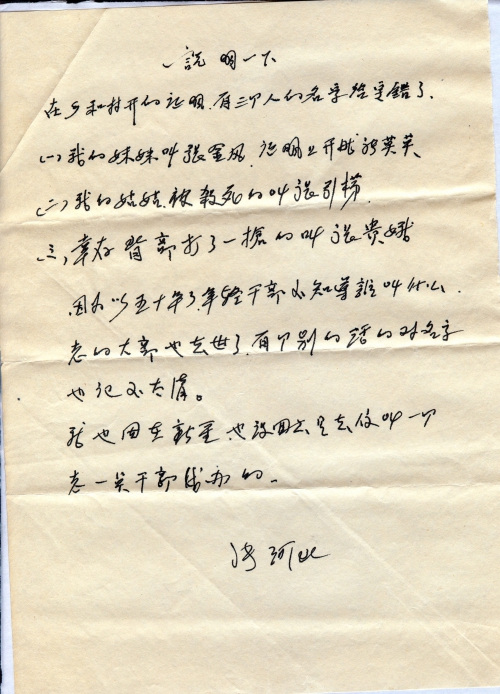 說明一下
在乡和村开的証明,有三个人的名字给写错了.
(一)我的妹妹叫張金凤,証明上开成張英英、
(二)我的姑姑被殺死的叫張引梯
三,幸存背部打了一槍的叫張贵娥
因为以五十年了年轻干部不知道誰叫什么.
老的大部也去世了,有个别的活的对名字
也记不太清。
我也因在新 也没回去只去信叫一个
老一 干部代办的.